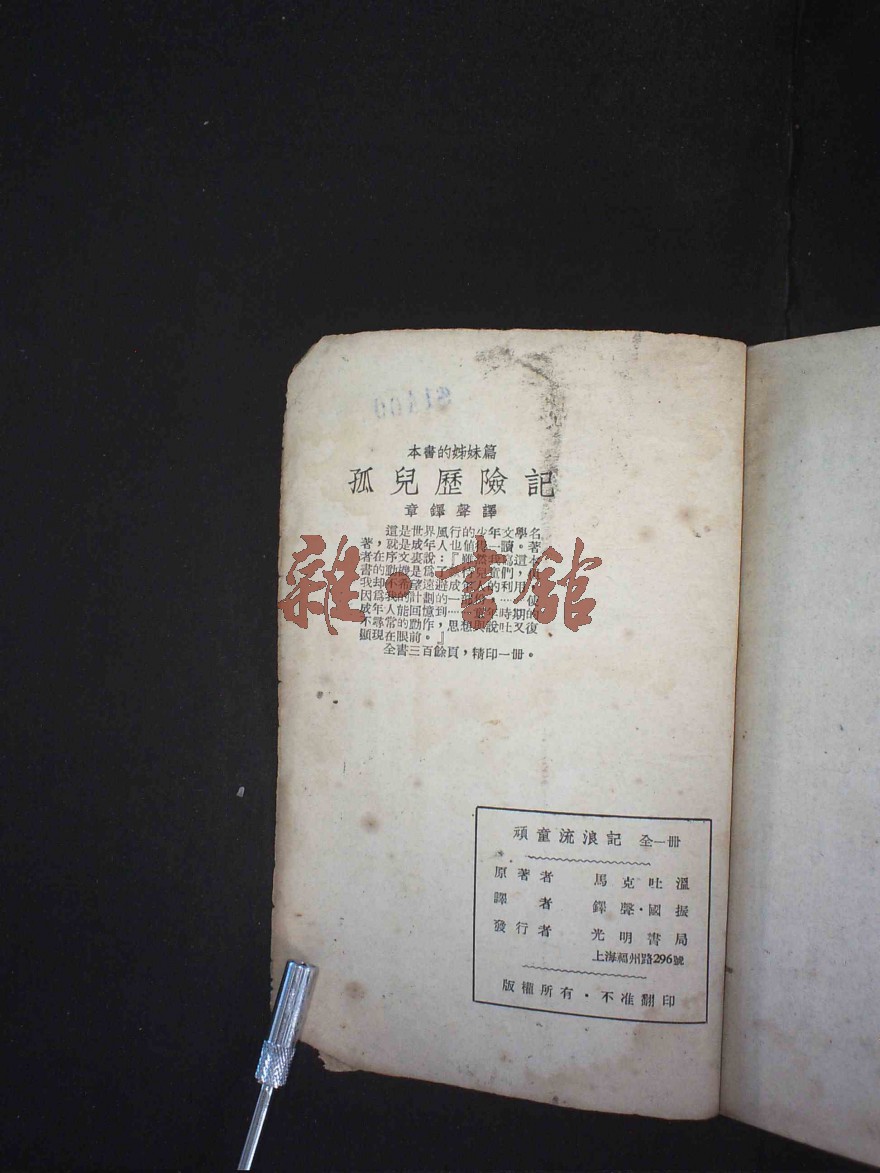 本書的姊妹篇
孤兒歷險記
章鐸聲譯
這是世界風行的少年文學名
著，就是成年人也值得一讀。著
者在序文裏說：『雖然我寫這本
書的動機是爲了 兒童們，
我却不希望遠避成年人的利用，
因爲我的計劃的一部份 使
成年人能回憶到……童年時期的
不尋常的動作，思想與說吐又復
顯現在眼前。』
全書三百餘頁，精印一冊。
頑童流浪記 全一冊
原著者 馬克吐溫
譯者 鐸聲·國振
發行者 光明書局
上海福州路296號
版權所有·不准翻印
雜·書館